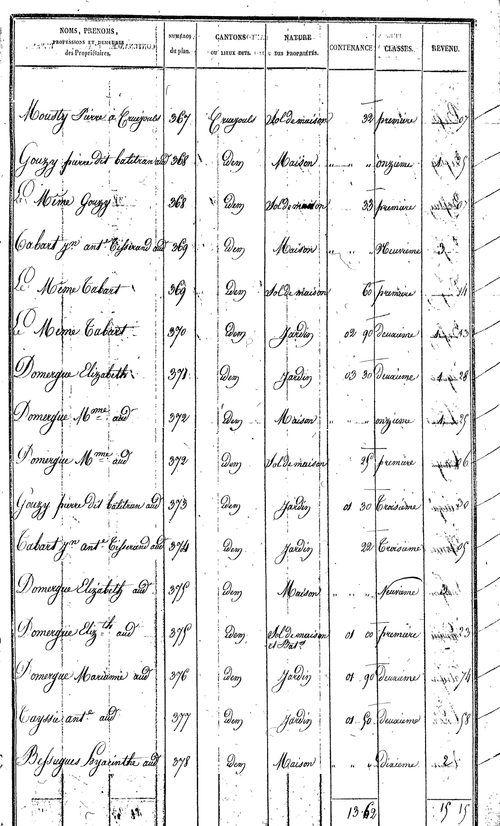 NOMS, PRÉNOMS, PROFESSIONS ET DEMEURES des Propriétaires. NUMÉROS du plan. CANTONS OU LIEUX DITS. NATURE DES PROPRIÉTÉS. CONTENANCE CLASSES. REVENU.
Mousty Pierre à Cruejouls 367 Cruejouls Sol de maison 32 première 07
Gouzy pierre dit batitran aud 368 idem Maison " " onzieme
Le Même Gouzy 368 idem Sol de maison 33 première
Cabart jn ante Tisserand aud 369 idem Maison " " Neuvieme 3
Le Même Tabart 369 idem Sol de maison 60 première 14
Le Même Tabart 370 idem Jardin 02 90 deuxieme 43
Domergue Elizabeth 371 idem Jardin 03 30 deuxieme 28
Domergue Mme aud 372 idem Maison " " onzieme
Domergue Mme aud 372 idem Sol de maison 25 première 6
Gouzy pierre dit batitran aud 373 idem Jardin 01 30 Troisieme 30
Cabart jn ante Tisserand aud 374 idem Jardin 22 Troisieme 05
Domergue Elizabeth aud 375 idem Maison " " Neuvieme
Domergue Elizth aud 375 idem Sol de maison et Bat. 01 00 première 23
Domergue Marianne aud 376 idem Jardin 01 90 Deuxieme 74
Cayssie ante aud 377 idem Jardin 01 50 Deuxieme 58
Bessugues hyacinthe aud 378 idem Maison " " Dixieme 2
13 62 15 15